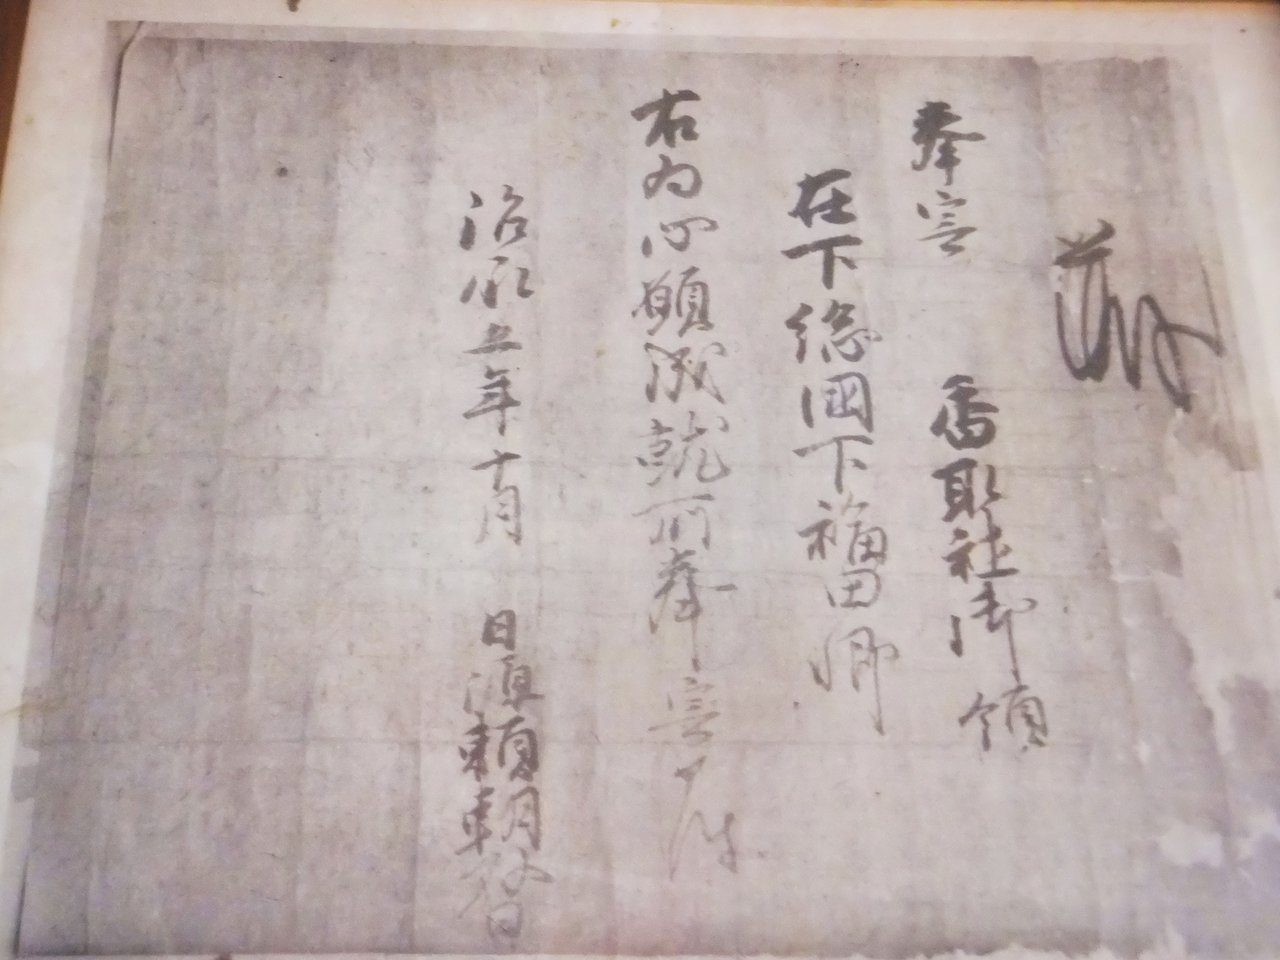 奉寄 香取社御領
在下総國下福田郷
右為心願成就所奉寄如件
治承五年十月 日源頼朝敬白